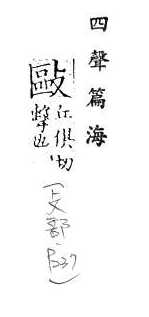 四聲篇海
敺
丘俱切
擊也
(攴部, P237)